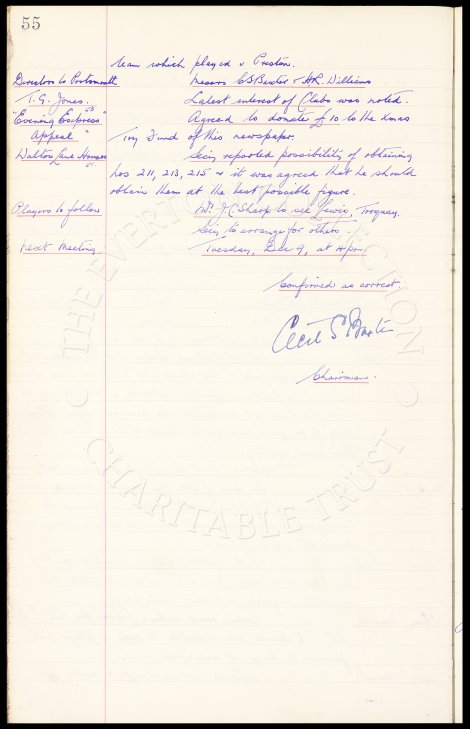 55
team which played v Preston.
Directors to Portsmouth Messrs C S Baxter & H R. Williams
T. G. Jones. Latest interest of Clubs was noted.
"Evening Express" Agreed to donate £10 to the Xmas
Appeal " Toy Fund of this newspaper.
Walton Lane Houses Secy reported possibility of obtaining
nos 211, 213, 215 & it was agreed that he should
obtain them at the best possible figure.
Players to follow Mr J C Sharp to see Lewis, Torquay.
Secy to arrange for others.
next meeting Tuesday, Dec 9, at 4pm
Confirmed as correct
Cecil S Baxter
Chairman.
THE EVERTON COLLECTION
CHARITABLE TRUST